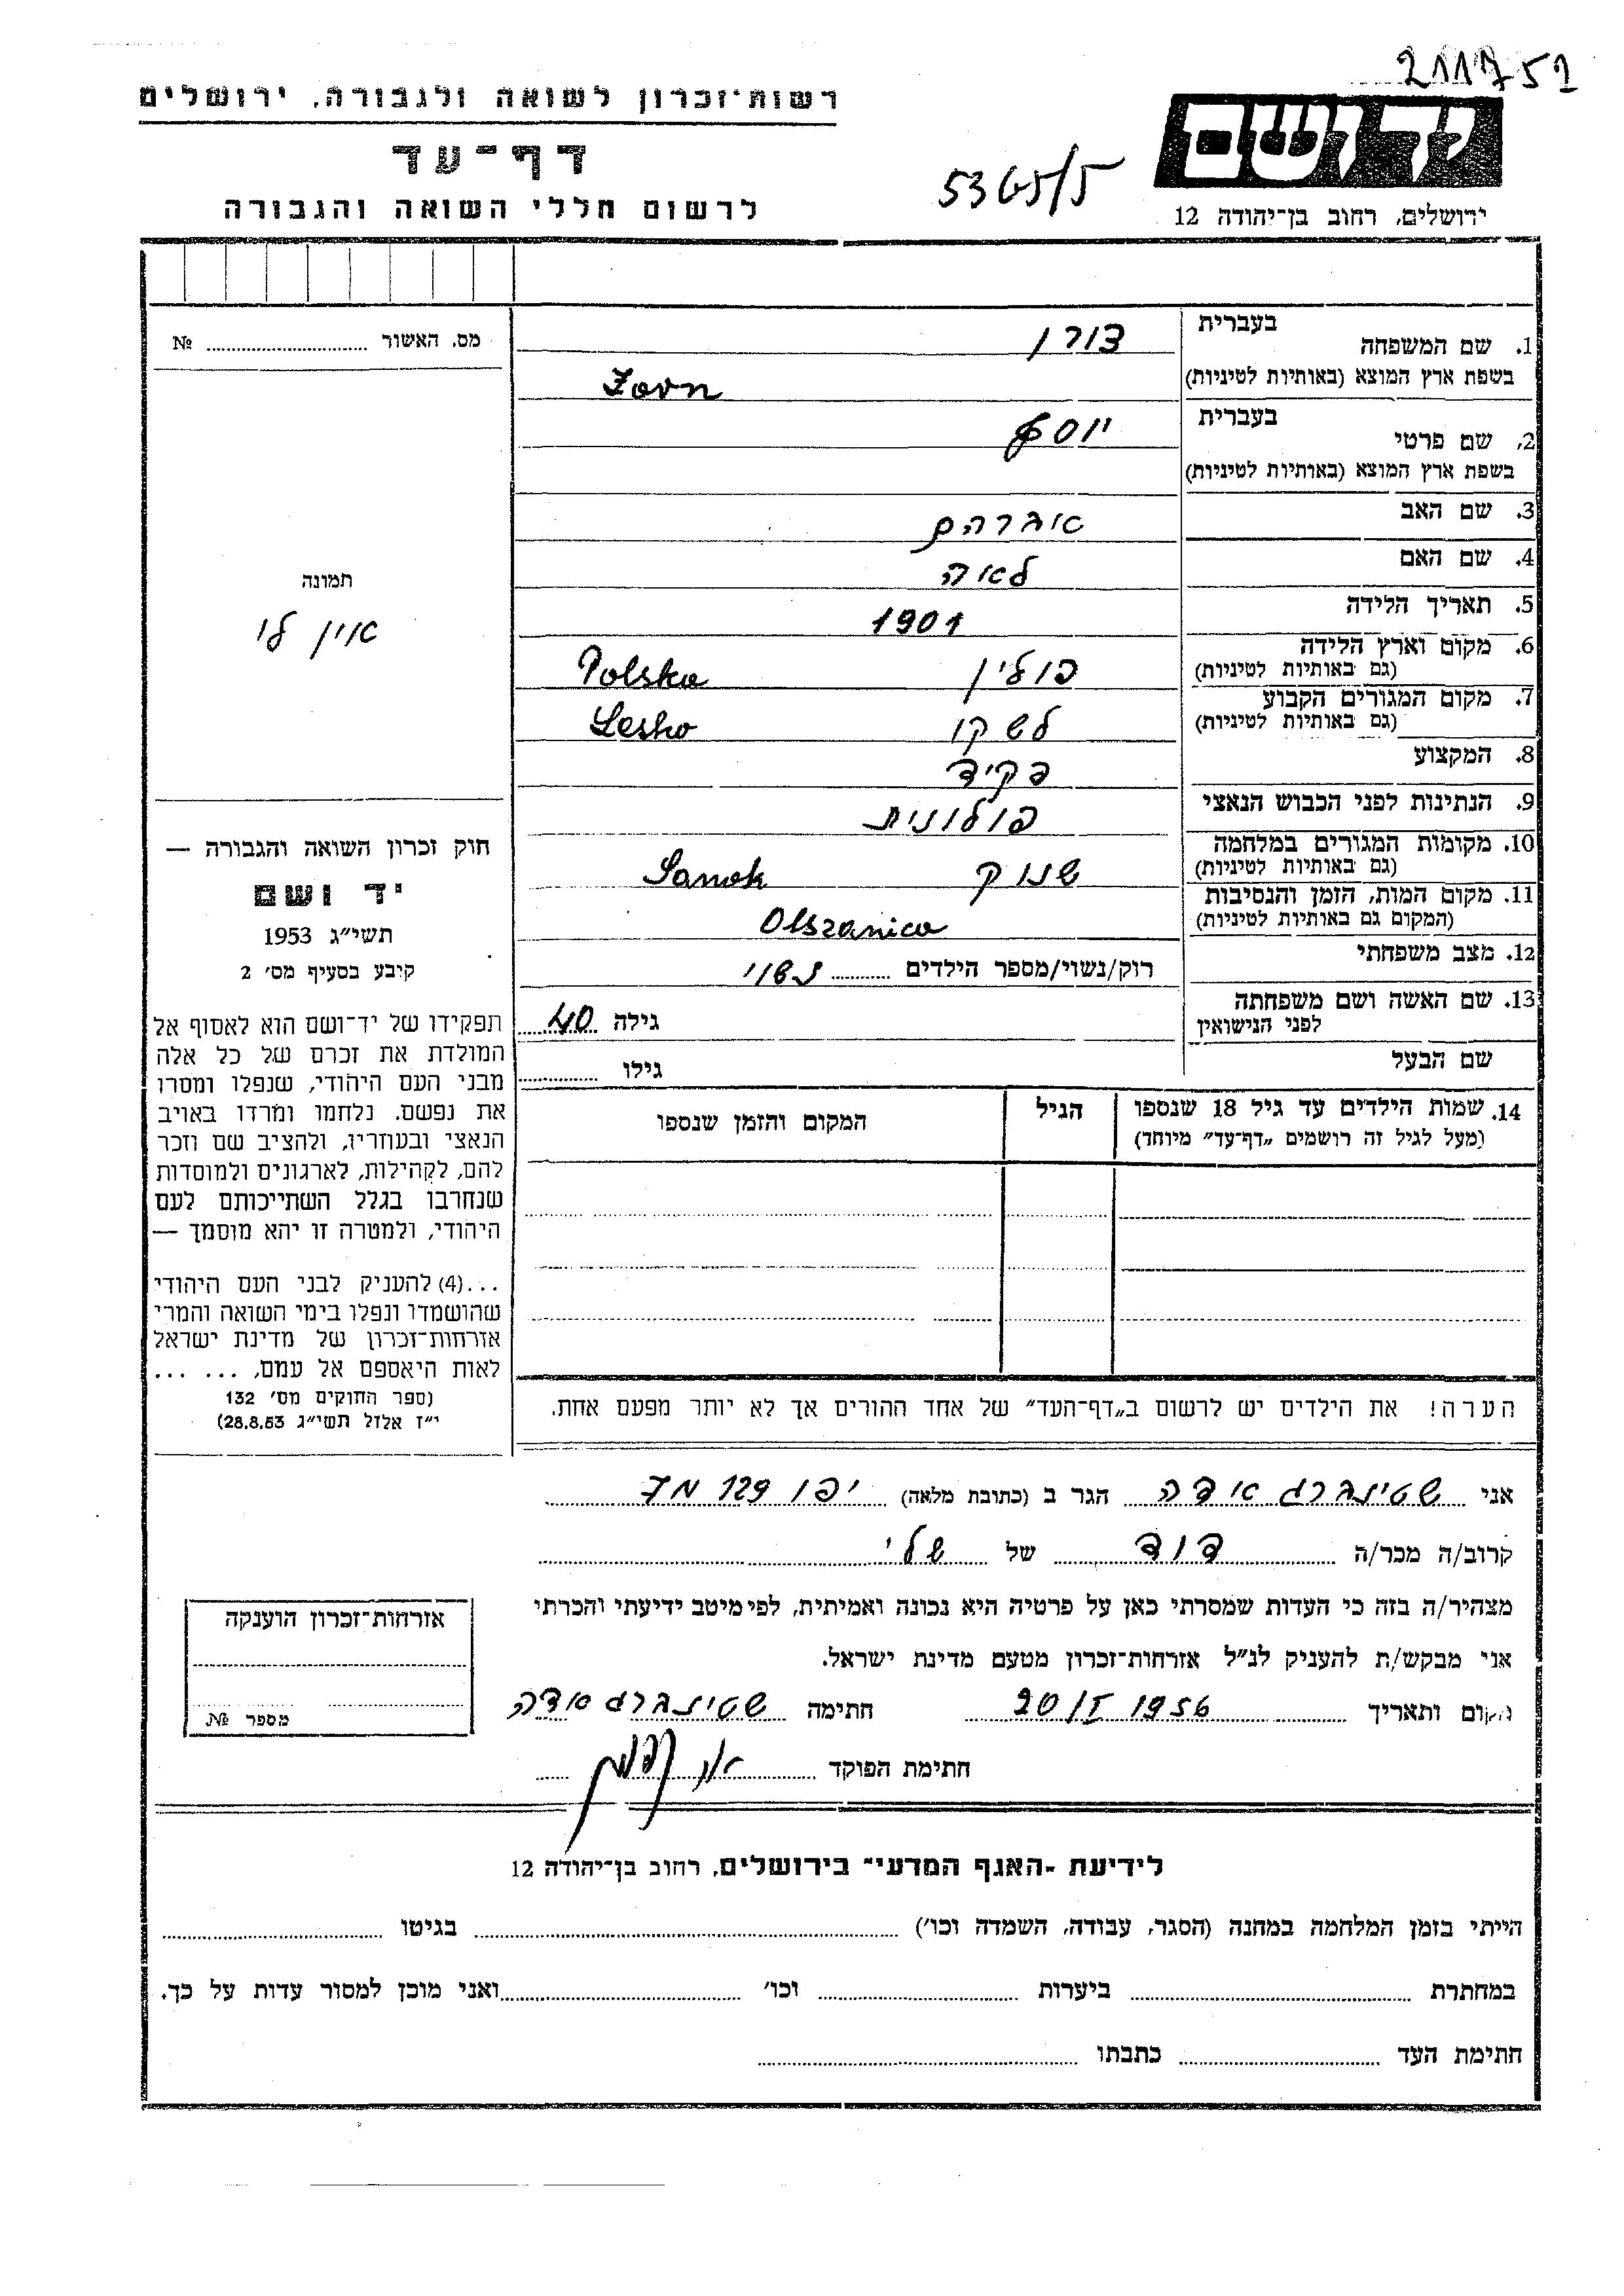 211751
רשות־זכרון לשואה ולגבורה, ירושלים
יד ושם
דף־עד
5365/5
לרשום חללי השואה והגבורה
ירושלים, רחוב בן־יהודה 12
בעברית
1. שם המשפחה
צורן
בשפת ארץ המוצא (באותיות לטיניות)
Zorn
בעברית
2. שם פרטי
יוסף
בשפת ארץ המוצא (באותיות לטיניות)
3. שם האב
אברהם
4. שם האם
לאה
5. תאריך הלידה
1901
6. מקום וארץ הלידה
(גם באותיות לטיניות)
פולין Polska
7. מקום המגורים הקבוע
(גם באותיות לטיניות)
לשקו Lesko
8. המקצוע
פקיד
9. הנתינות לפני הכבוש הנאצי
פולונית
10. מקומות המגורים במלחמה
(גם באותיות לטיניות)
שנוק Sanok
11. מקום המות, הזמן והנסיבות
(המקום גם באותיות לטיניות)
Olszanica
12. מצב משפחתי
רוק/נשוי/מספר הילדים נשוי
13. שם האשה ושם משפחתה
לפני הנישואין
גילה 40
שם הבעל
גילו
14. שמות הילדים עד גיל 18 שנספו
(מעל לגיל זה רושמים „דף־עד" מיוחד)
הגיל
המקום והזמן שנספו
הערה! את הילדים יש לרשום ב„דף־העד" של אחד ההורים אך לא יותר מפעם אחת.
מס. האשור № 
תמונה
אין לי
חוק זכרון השואה והגבורה —
יד ושם
תשי"ג 1953
קיבע בסעיף מס' 2
תפקידו של יד־ושם הוא לאסוף אל
המולדת את זכרם של כל אלה
מבני העם היהודי, שנפלו ומסרו
את נפשם. נלחמו ומרדו באויב
הנאצי ובעוזריו, ולהציב שם וזכר
להם, לקהילות, לארגונים ולמוסדות
שנחרבו בגלל השתייכותם לעם
היהודי, ולמטרה זו יהא מוסמך —
...(4) להעניק לבני העם היהודי
שהושמדו ונפלו בימי השואה והמרי
אזרחות־זכרון של מדינת ישראל
לאות היאספם אל עמם, ... ...
(ספר החוקים מס' 132
י"ז אלול תשי"ג 28.8.53)
אני שטינברג אידה הגר ב (כתובת מלאה) יפו 129
קרוב/ה מכר/ה דוד של שלי
מצהיר/ה בזה כי העדות שמסרתי כאן על פרטיה היא נכונה ואמיתית, לפי מיטב ידיעתי והכרתי
אני מבקש/ת להעניק לנ"ל אזרחות־זכרון מטעם מדינת ישראל.
מקום ותאריך 20/I 1956 חתימה שטינברג אידה
חתימת הפוקד
אזרחות־זכרון הוענקה
מספר №
לידיעת -האגף המדעי" בירושלים, רחוב בן־יהודה 12
הייתי בזמן המלחמה במחנה (הסגר, עבודה, השמדה וכו') בגיטו
במחתרת ביערות וכו' ואני מוכן למסור עדות על כך.
חתימת העד כתבתו